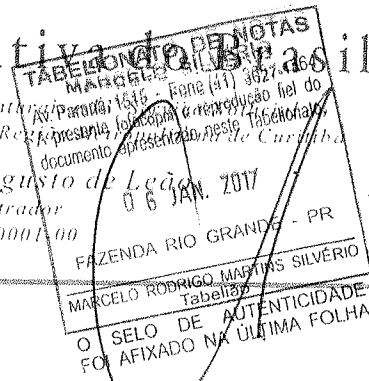 tiva do Brasil
TABELIONATO DE NOTAS
MARCELO SILVÉRIO
Av. Paraná, 1615 - Fone (41) 3627-1644
A presente fotocópia é reprodução fiel do
documento apresentado neste Tabelionato.
de Curitiba
gusto de Leão
trador
0001-00
06 JAN. 2017
FAZENDA RIO GRANDE - PR
MARCELO RODRIGO MARTINS SILVÉRIO
Tabelião
O SELO DE AUTENTICIDADE
FOI AFIXADO NA ÚLTIMA FOLHA